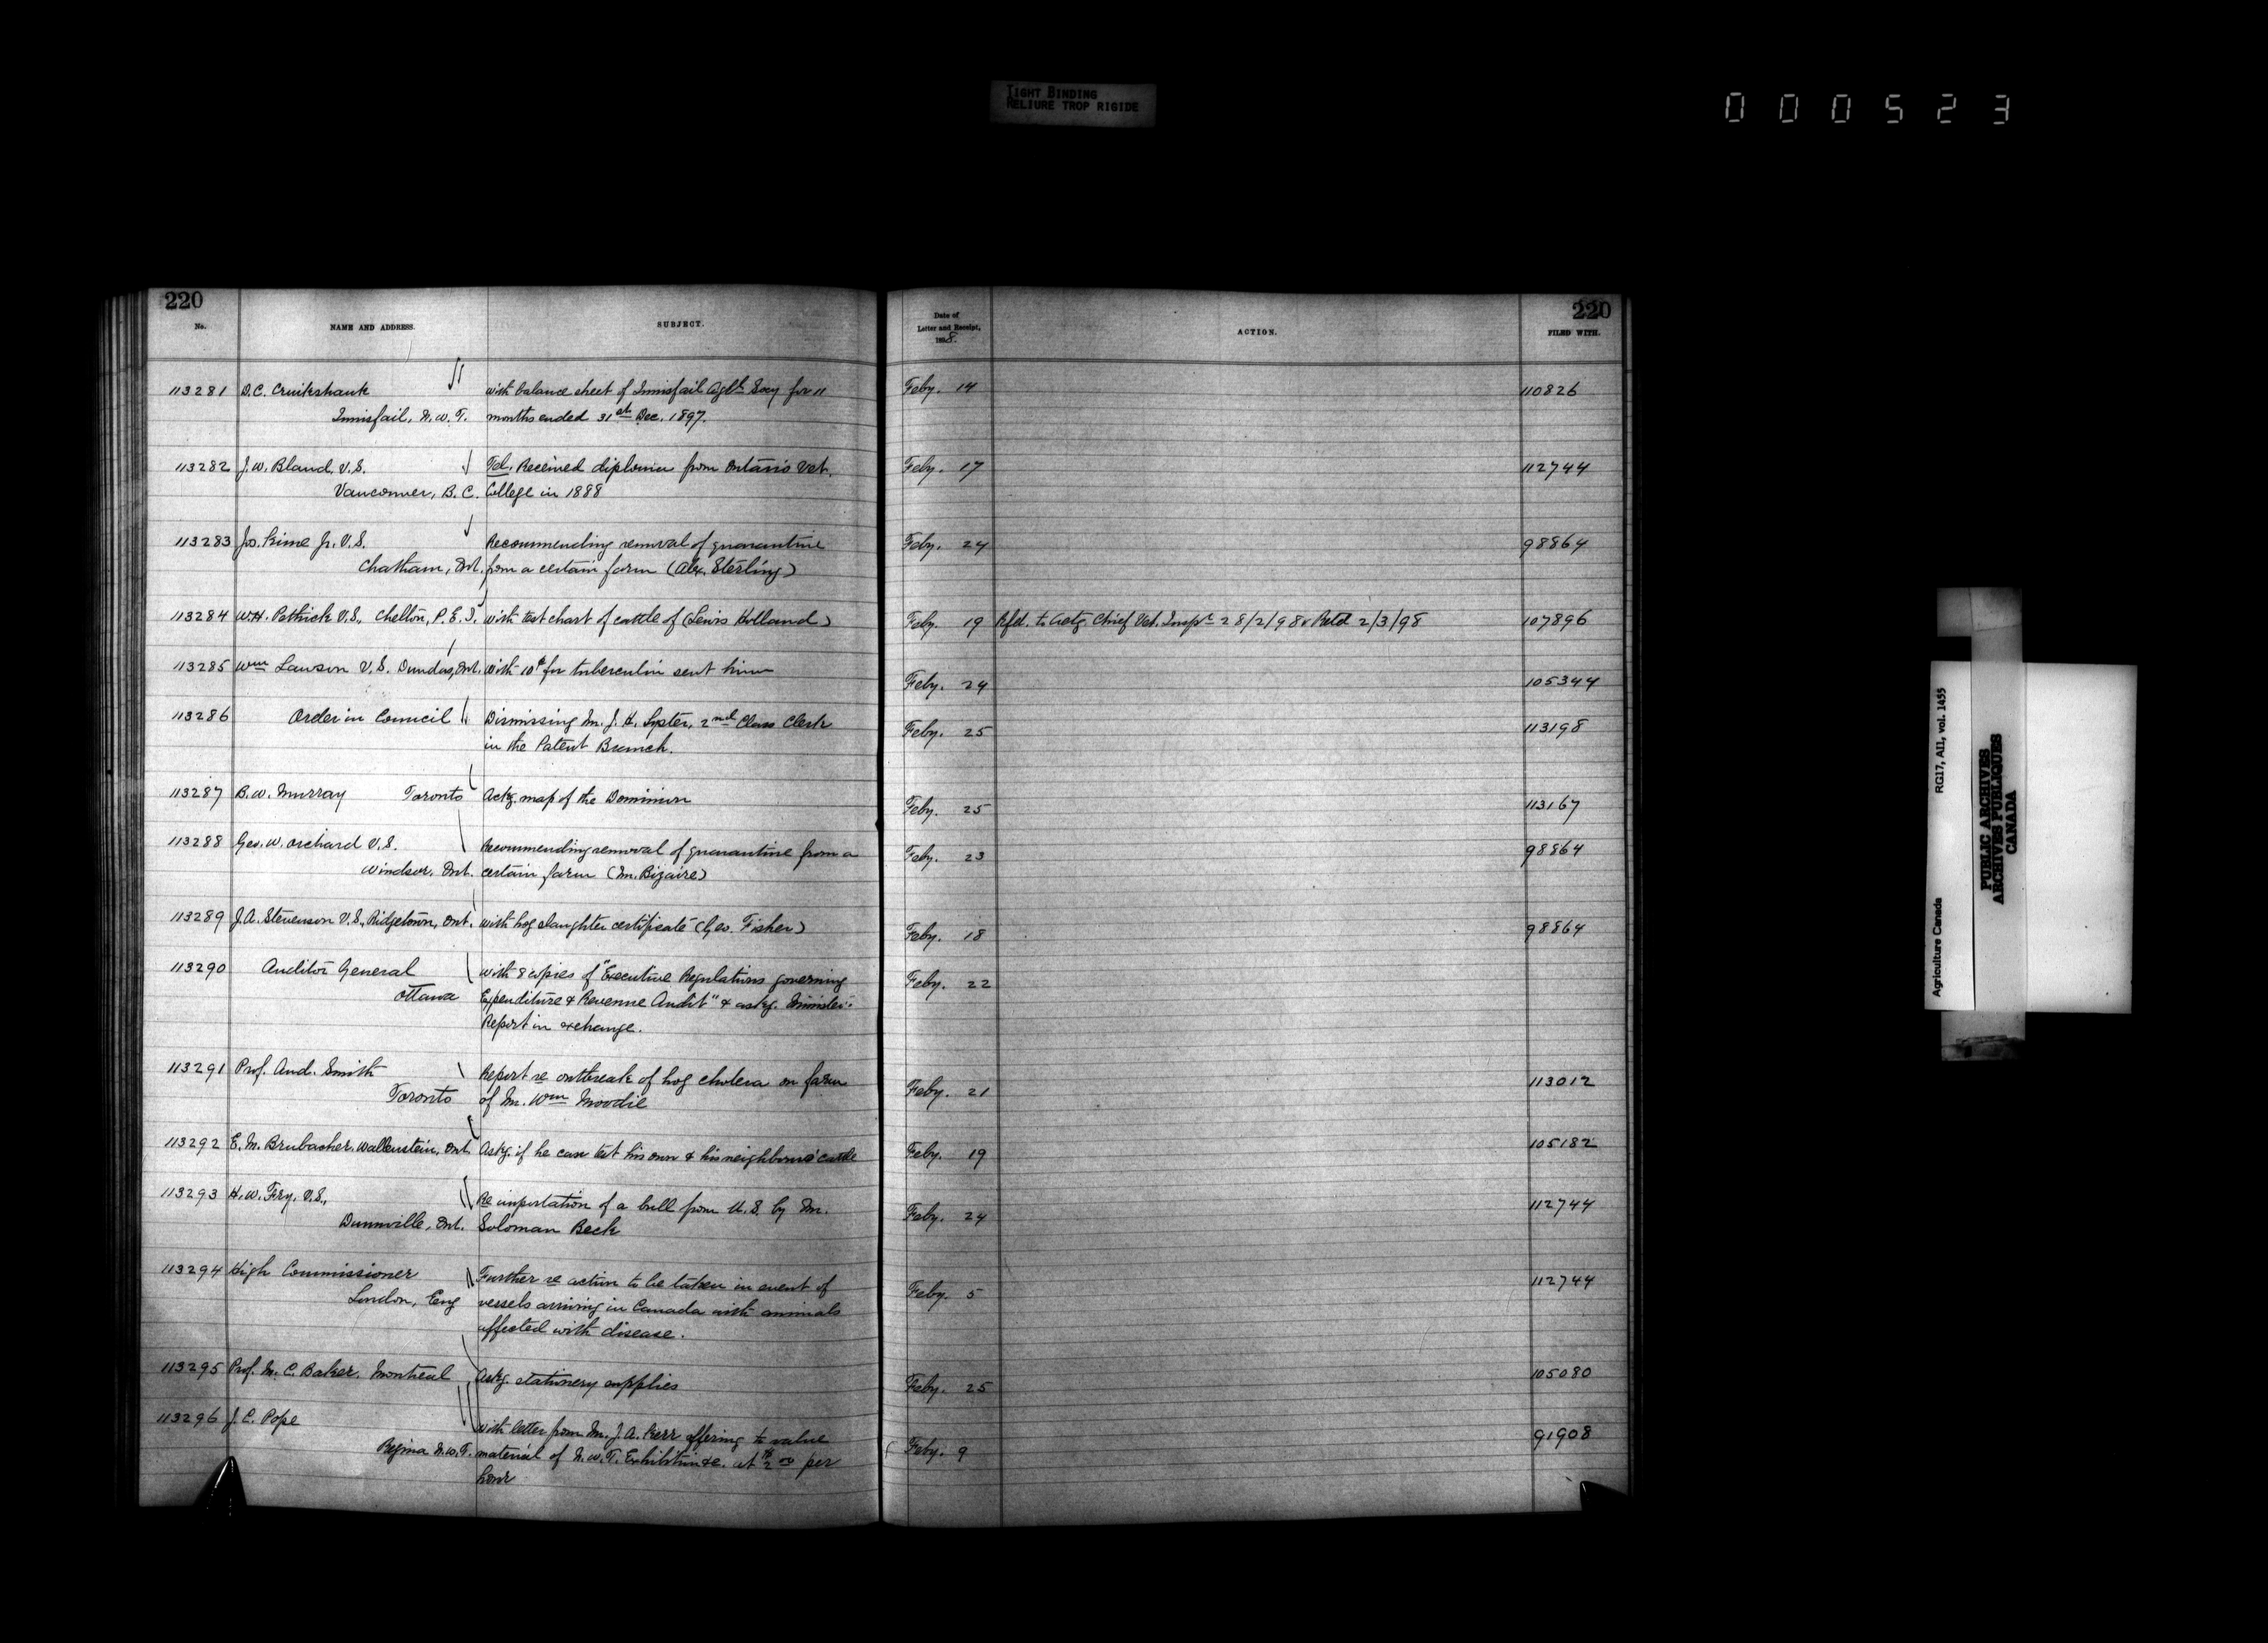 TIGHT BINDING
RELIURE TROP RIGIDE
000523
220
No. NAME AND ADDRESS. SUBJECT.
113281 D.C. Cruikshank with balance sheet of Innisfail Agl. Socy for 11
Innisfail, N.W.T. months ended 31st Dec. 1897.
113282 J.W. Bland, V.S. Tel. Received diploma from Ontario Vet.
Vancouver, B.C. College in 1888
113283 Jno. Kime Jr. V.S. Recommending removal of quarantine
Chatham, Ont. from a certain farm (Alex. Sterling)
113284 W.H. Pethick V.S., Chelton, P.E.I. with test chart of cattle of (Lewis Holland)
113285 Wm Lawson V.S. Dundas, Ont. with 10¢ for tuberculin sent him
113286 Order in Council Dismissing Mr. J.H. Lyster, 2nd Class Clerk
in the Patent Branch.
113287 B.W. Murray Toronto Ackg. map of the Dominion
113288 Geo. W. Orchard V.S. Recommending removal of quarantine from a
Windsor, Ont. certain farm (M. Bizaire)
113289 J.A. Stevenson V.S., Ridgetown, Ont. with hog slaughter certificate (Geo. Fisher)
113290 Auditor General with 8 copies of "Executive Regulations governing
Ottawa Expenditure & Revenue Audit" & askg. Minister's
Report in exchange.
113291 Prof. And. Smith Report re outbreak of hog cholera on farm
Toronto of Mr. Wm Moodie
113292 E.M. Brubacher, Wallenstein, Ont. Askg. if he can test his own & his neighbours' cattle
113293 H.W. Fry, V.S., Re importation of a bull from U.S. by Mr.
Dunnville, Ont. Soloman Beck
113294 High Commissioner Further re action to be taken in event of
London, Eng vessels arriving in Canada with animals
affected with disease.
113295 Prof. M.C. Baker, Montreal Askg. stationery supplies
113296 J.C. Pope with letter from Mr. J.A. Kerr offering to value
Regina N.W.T. material of N.W.T. Exhibition &c. at $2.00 per
hour
220
Date of
Letter and Receipt, ACTION. FILED WITH.
1898.
Feby. 14 110826
Feby. 17 112744
Feby. 24 98864
Feby. 19 Rfd. to Actg. Chief Vet. Inspr 28/2/98 & Retd 2/3/98 107896
Feby. 24 105344
Feby. 25 113198
Feby. 25 113167
Feby. 23 98864
Feby. 18 98864
Feby. 22
Feby. 21 113012
Feby. 19 105182
Feby. 24 112744
Feby. 5 112744
Feby. 25 105080
Feby. 9 91908
Agriculture Canada RG17, AII, vol. 1455
PUBLIC ARCHIVES
ARCHIVES PUBLIQUES
CANADA